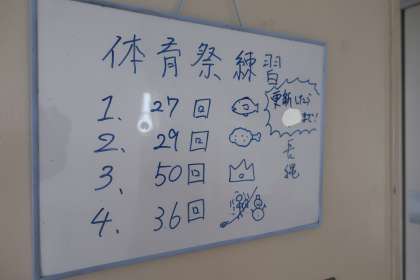 体育祭練習
1. 27回
2. 29回
3、 50回
4、 36回
更新したら
長縄